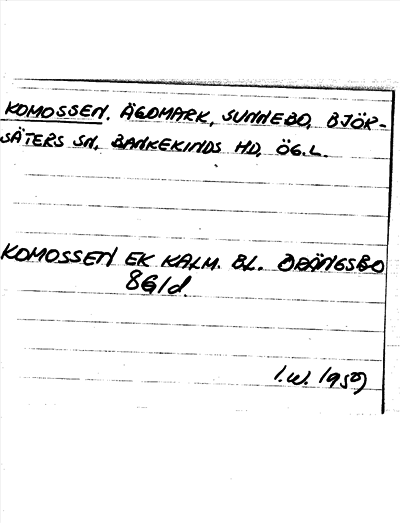 KOMOSSEN. ÄGOMARK, SUNNEBO, BJÖR-
SÄTERS SN, BANKEKINDS HD, ÖG.L.
KOMOSSEN EK KALM. BL. DRÄNGSBO
8G1d.
I.W. 1959